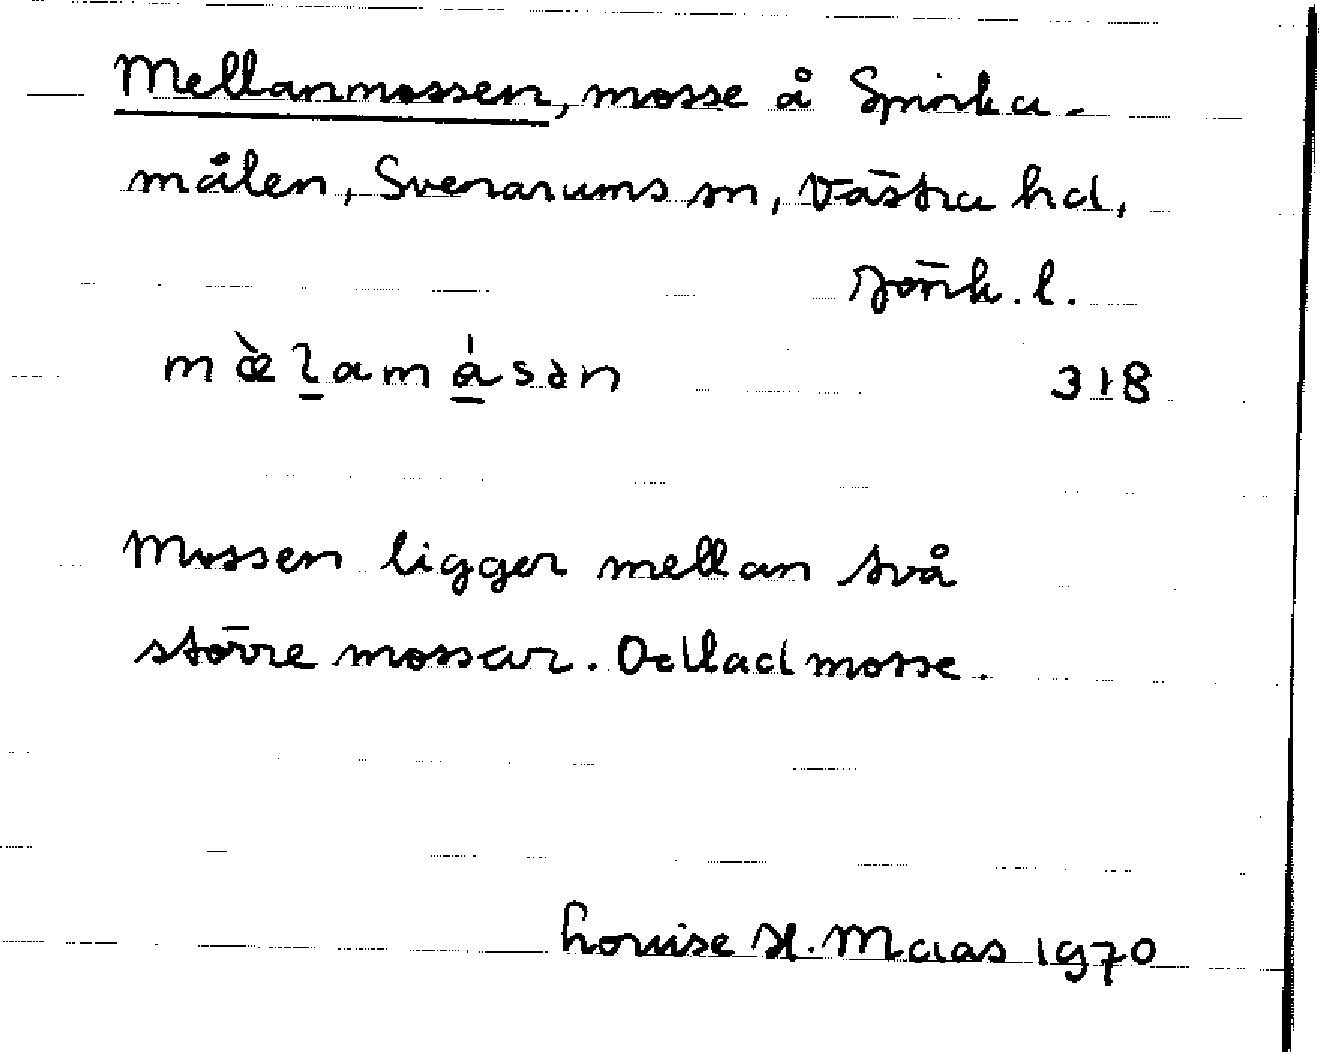 Mellanmossen, mosse å Spirka-
målen, Svenarums sn, Västra hd,
Jönk. l.
mæ̀l̠amá̠sən 318
Mossen ligger mellan två
större mossar. Odlad mosse.
Louise H. Maas 1970